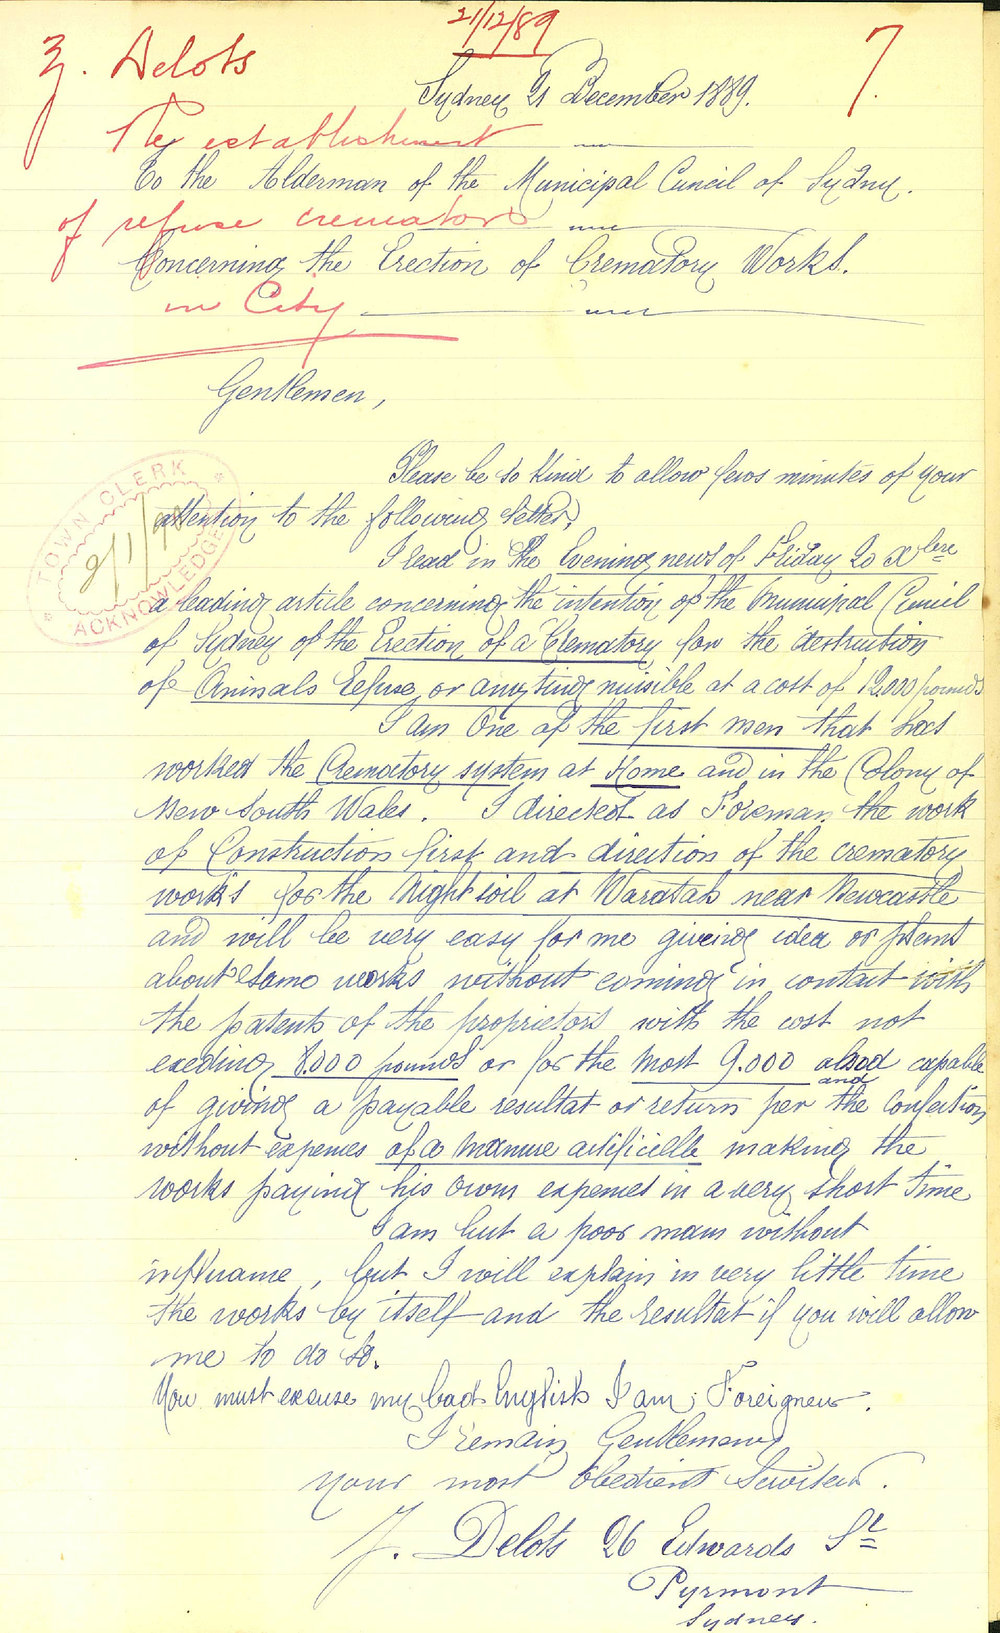 21/12/89
7.
J. Delots
Sydney 21 December 1889.
Re establishment
To the Alderman of the Municipal Cuncil of Sydney.
of refuse crematory
Concerning the Erection of Crematory Works.
in City
Gentlemen,
Please be so kind to allow fews minutes of your
attention to the following letter,
TOWN CLERK
2/1/90
ACKNOWLEDGED
I read in the Evening news of Friday 20 Xbre
a leading article concerning the intention of the Municipal Cuncil
of Sydney of the Erection of a Crematory for the destruction
of Animals Refuse, or any ting nuisible at a cost of 12.000 pounds
I am One of the first men that has
worked the Crematory system at Home and in the Colony of
New South Wales. I directed as Foreman the work
of Construction first and direction of the crematory
works for the Nightsoil at Waratah near Newcastle
and will be very easy for me giveing idea or plans
about same works without coming in contact with
the patents of the proprietors with the cost not
exeding 8.000 pounds or for the most 9.000 and capable
of giving a payable resultat or return per the Confection
without expenses of a manure artificielle making the
works paying his own expenses in a very short time
I am but a poor man without
influame, but I will explain in very little time
the works by itself and the resultat if you will allow
me to do so.
You must excuse my bad English I am Foreigner.
I remain Gentlemen
your most Obedient Serviteur.
J. Delots 26 Edwards St
Pyrmont
Sydney.